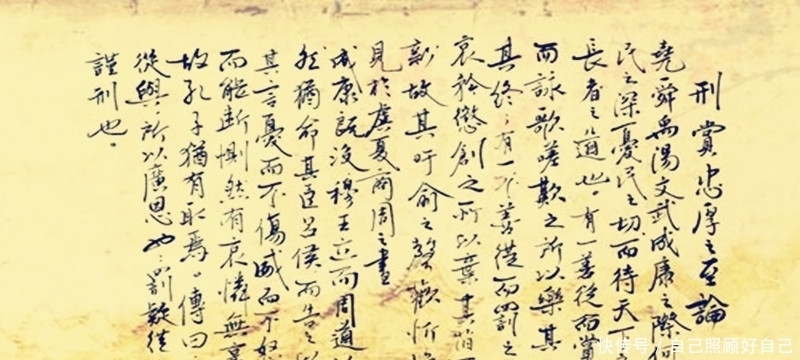 刑賞忠厚之至論
堯舜禹湯文武成康之際何
民之深憂民之切而待天下
長者之道也。有一善從而賞
而詠歌嗟歎之所以樂其
其終；有一不善從而罰之
哀矜懲創之所以棄其舊而
新故其吁俞之聲歡忻慘
見於虞夏商周之書
成康既沒穆王立而周道
然猶命其臣呂侯而告之以
其言憂而不傷威而不怒
而能斷惻然有哀憐無辜
故孔子猶有取焉。傳曰
從與，所以廣恩也；罰疑從
謹刑也。
快传号/自己照顾好自己